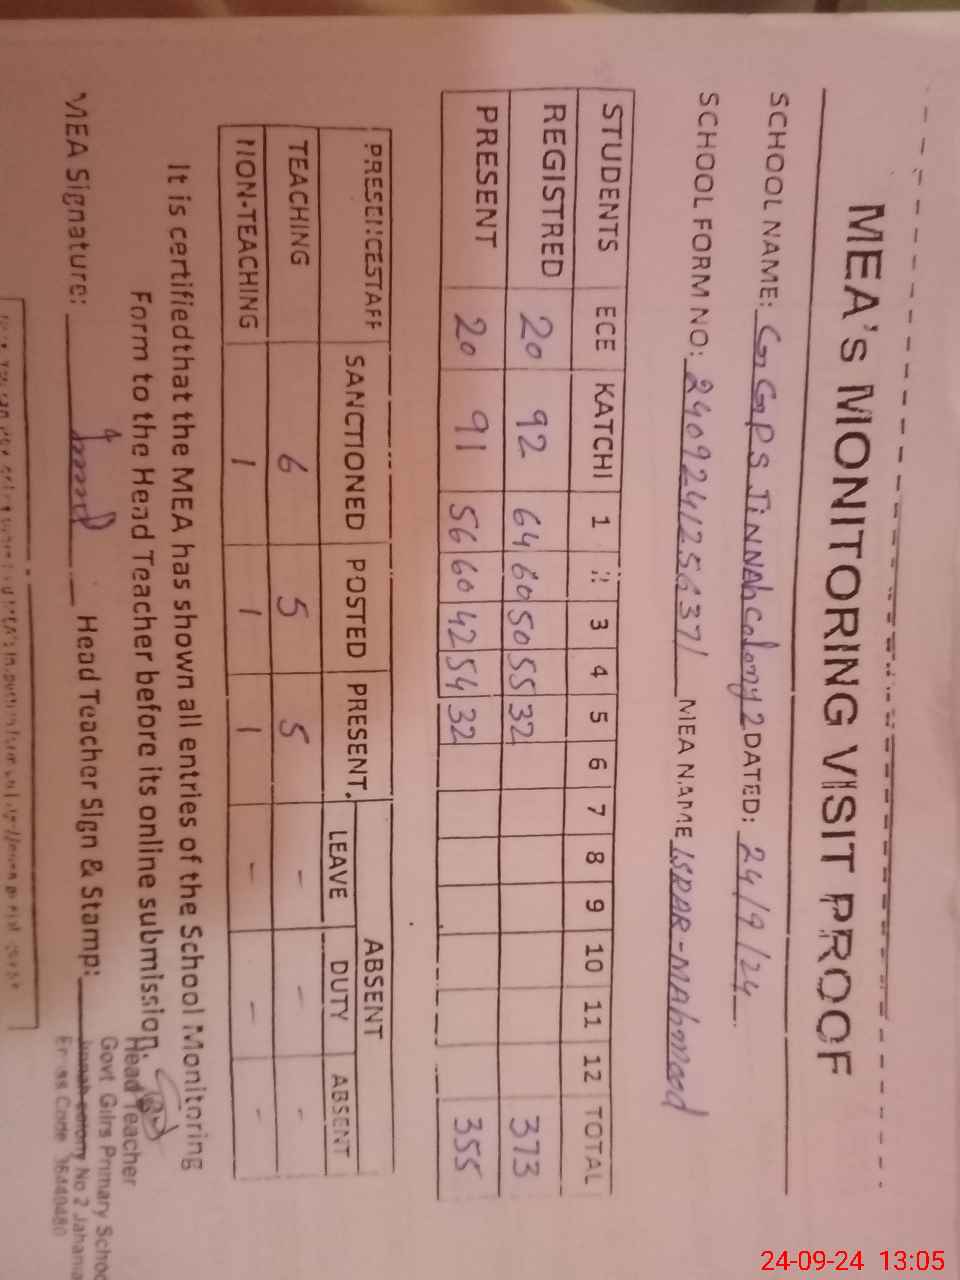 MEA's MONITORING VISIT PROOF
SCHOOL NAME: GGPS JiNNAh Colony 2 DATED: 24/9/24
SCHOOL FORM NO: 2409241256371 MEA NAME ISRAR-MAhmood
STUDENTS ECE KATCHI 1 2 3 4 5 6 7 8 9 10 11 12 TOTAL
REGISTRED 20 92 64 60 50 55 32 373
PRESENT 20 91 56 60 42 54 32 355
PRESENCESTAFF SANCTIONED POSTED PRESENT. ABSENT
LEAVE DUTY ABSENT
TEACHING 6 5 5 - - -
NON-TEACHING 1 1 1 - - -
It is certified that the MEA has shown all entries of the School Monitoring
Form to the Head Teacher before its online submission.
MEA Signature: Head Teacher Sign & Stamp:
Head Teacher
Govt Gilrs Primary School
Jinnah colony No 2 Jahania
Emiss Code 36440480
24-09-24 13:05